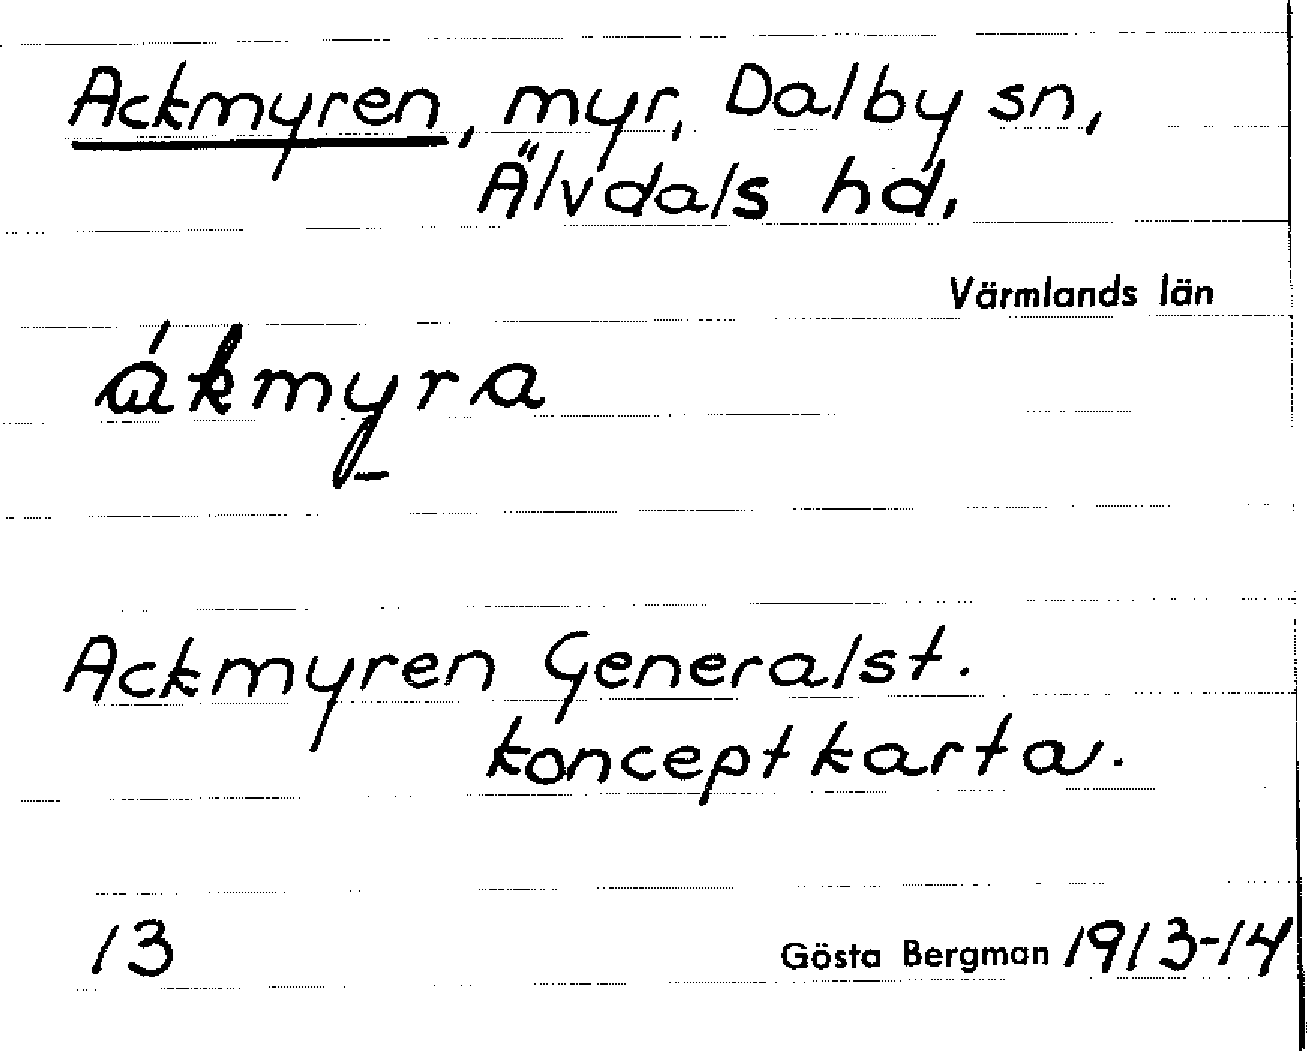 Ackmyren, myr, Dalby sn,
Älvdals hd,
Värmlands län
ákmyra
Ackmyren Generalst.
konceptkarta.
13 Gösta Bergman 1913-14